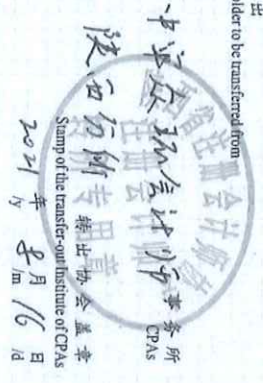 出
lder to be transferred from
中审众环会计师 事务所
CPAs
陕西分所 转出协会盖章
Stamp of the transfer-out Institute of CPAs
2021年 8月 16日
/y /m /d
注册会计师